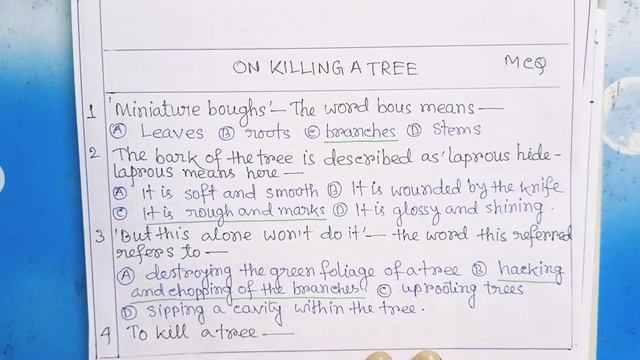 ON KILLING A TREE MCQ
1 'Miniature boughs' - The word bous means —
Ⓐ Leaves Ⓑ roots Ⓒ branches Ⓓ Stems
2 The bark of the tree is described as 'laprous hide -
laprous means here —
Ⓐ It is soft and smooth Ⓑ It is wounded by the knife
Ⓒ It is rough and marks Ⓓ It is glossy and shining.
3 'But this alone won't do it' - the word this referred
refers to —
Ⓐ destroying the green foliage of a tree Ⓑ hacking
and chopping of the branches Ⓒ uprooting trees
Ⓓ Sipping a cavity within the tree.
4 To kill a tree —